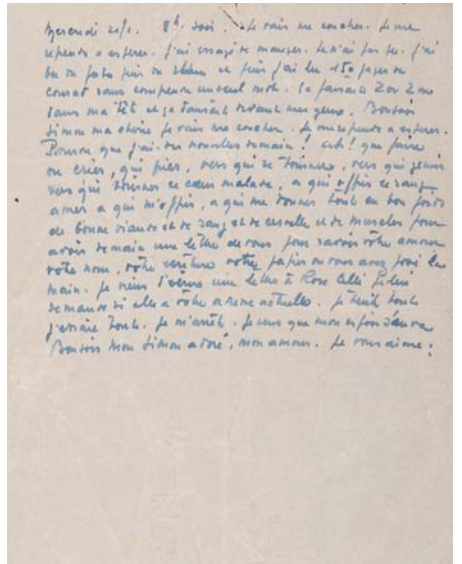 Mercredi 8h. soir. Je vais me coucher. Je me
reprends a esperer. J'ai essayé de manger. Je n'ai pas pu. J'ai
bu un et puis j'ai lu 150 pages de
sans comprendre un seul mot. Ca faisait Zon Zon
dans ma tête et ça dansait devant mes yeux. Bonsoir
Simon je vais me coucher. Je me reprends a esperer.
Pourvu que j'ai des nouvelles demain! ah! que faire
ou crier, qui prier, vers qui se tourner, vers qui gémir
vers qui tourner ce cœur malade, a qui offrir ce sang
amer a qui m'offrir, a qui me donner tout un bon poids
de bonne viande et de sang et de cervelle et de muscles pour
avoir demain une lettre de vous pour savoir votre amour
votre nom, votre écriture votre papier ou vous avez posé la
main. Je viens d'écrire une lettre à Rose Celli je lui
demande si elle a votre adresse actuelle. Je tente tout
j'essaie tout. Je m'arrête. Je sens que mon
Bonsoir mon Simon adoré, mon amour. Je vous aime.